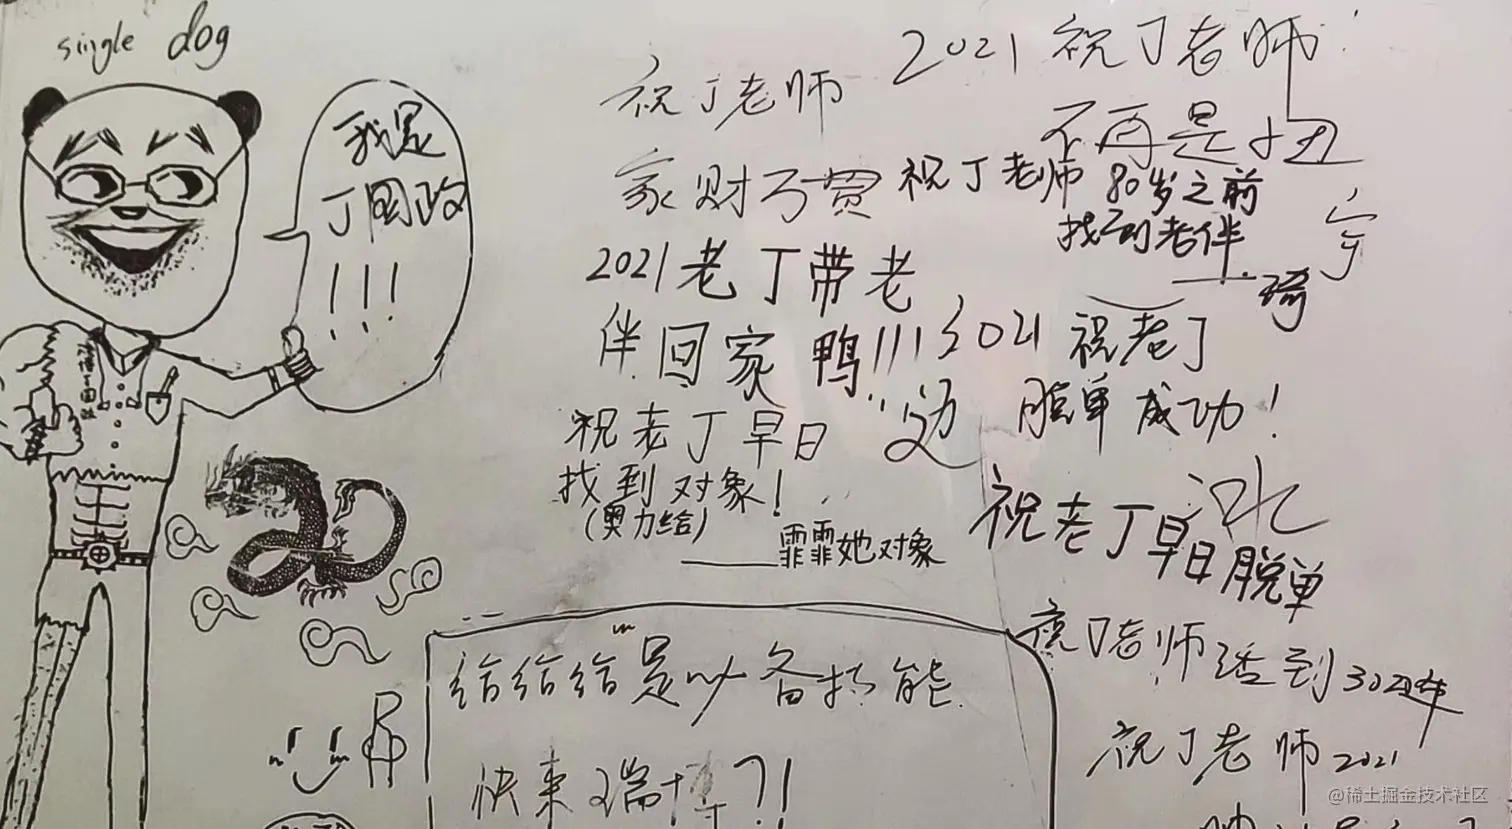 single dog
我是
丁国政
!!!
祝丁老师
家财万贯
2021祝丁老师
不再是
祝丁老师80岁之前
找到老伴
——琦
2021老丁带老
伴回家鸭!!!
2021祝老丁
脱单成功!
祝老丁早日
找到对象!
(奥力给)
——霏霏她对象
祝老丁早日脱单
给给给是必备技能
快来瑞博?!
祝丁老师2021
@稀土掘金技术社区